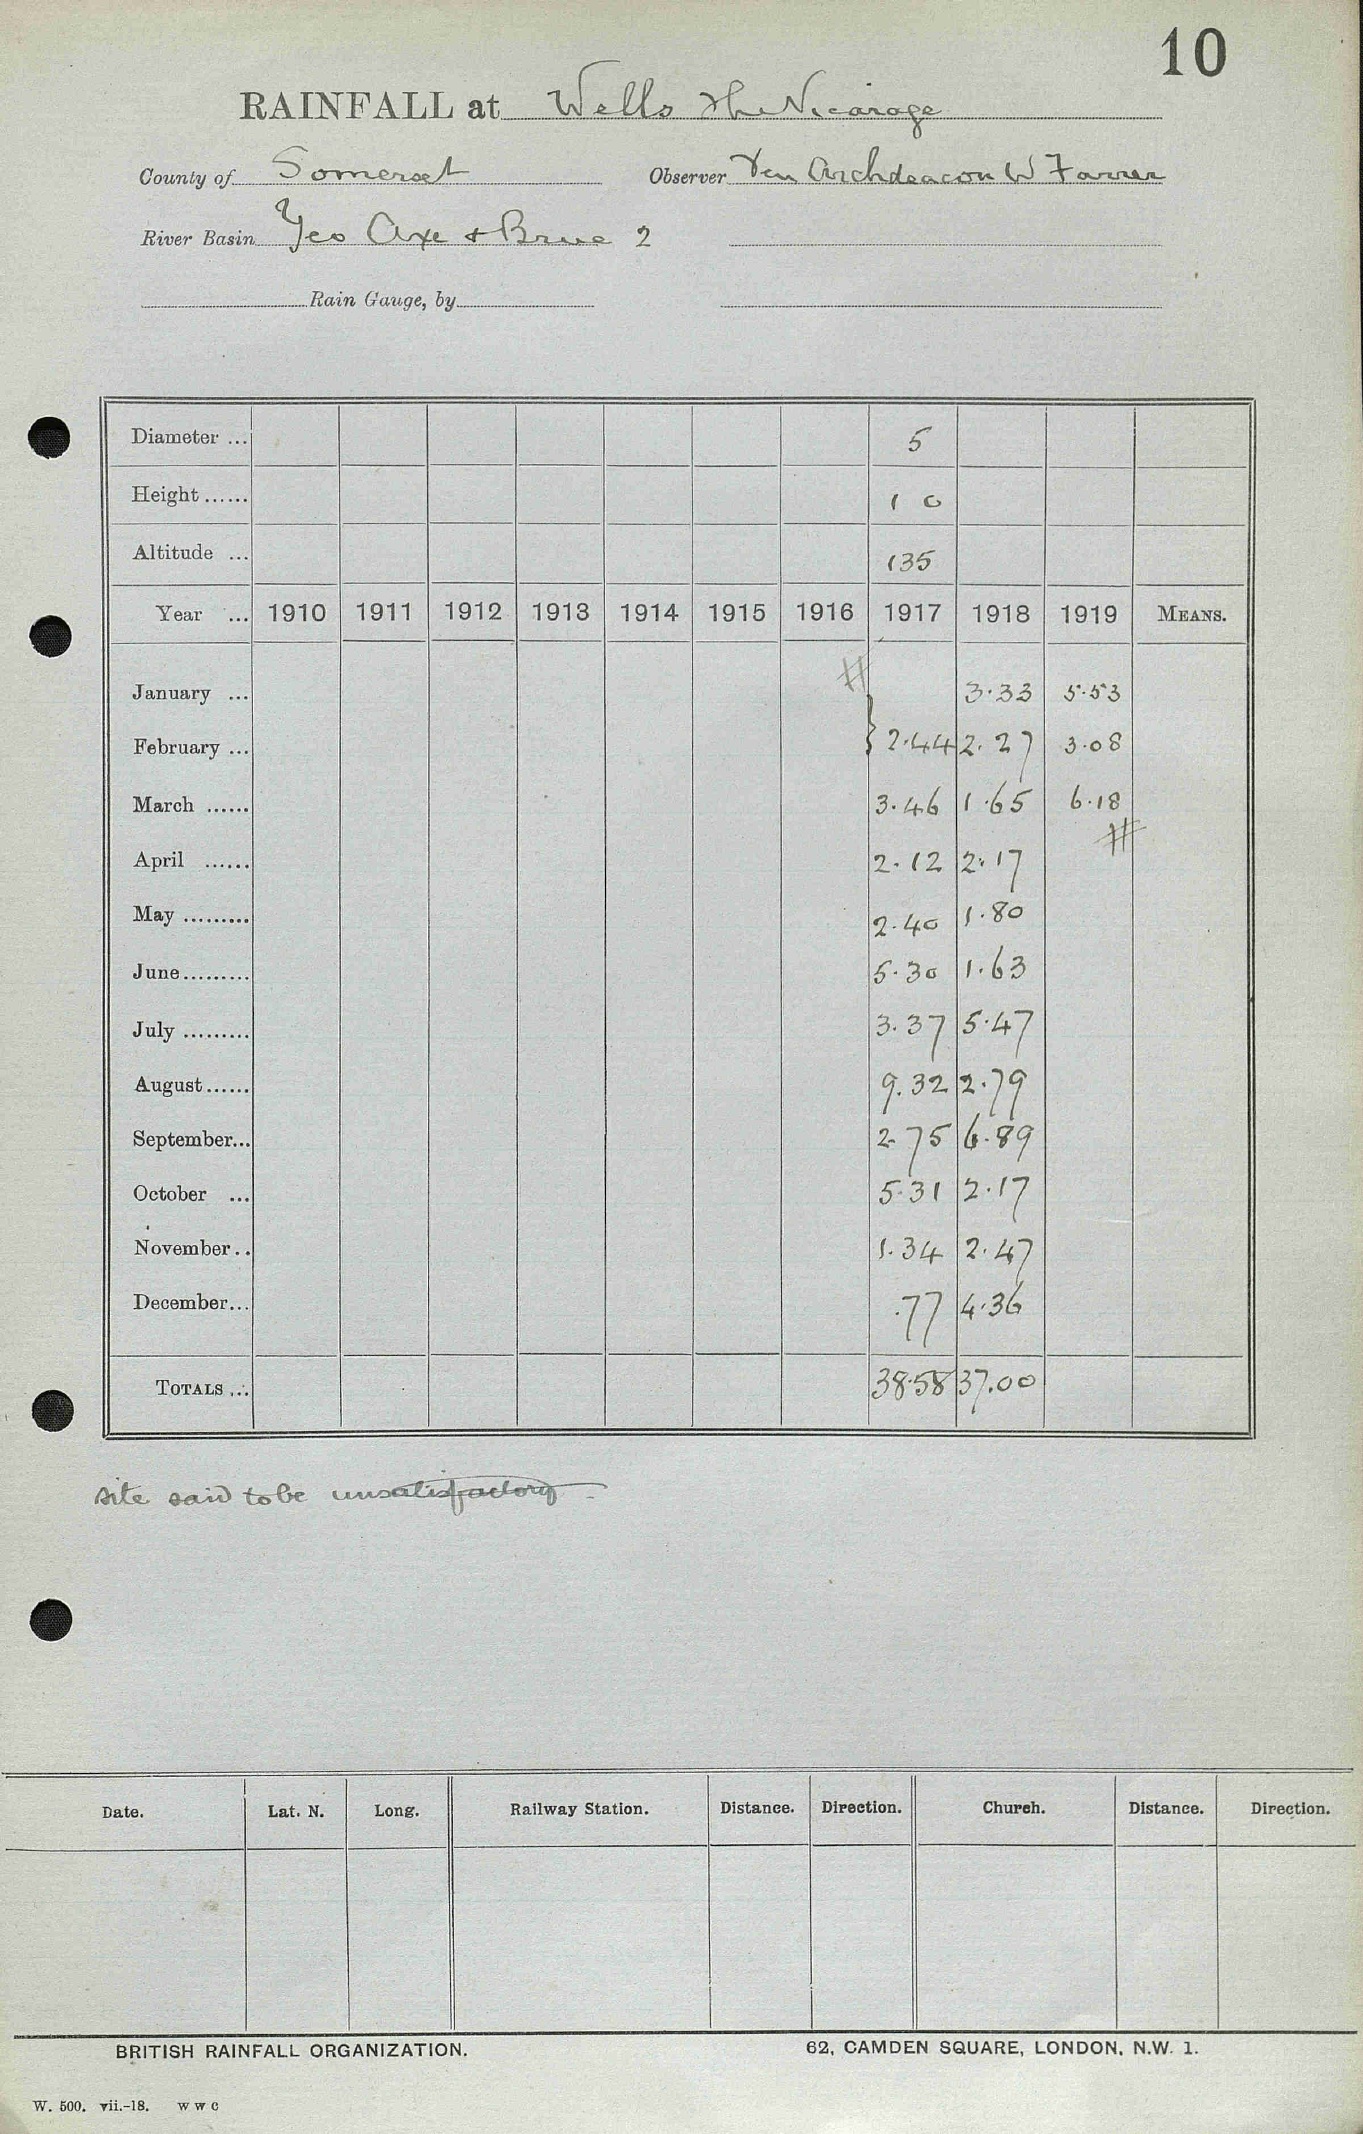 10
RAINFALL at Wells The Vicarage
County of Somerset Observer Ven Archdeacon W Farrer
River Basin Yeo Axe + Brue 2
Rain Gauge, by
Diameter ... 5
Height ...... 1 0
Altitude ... 135
Year ... 1910 1911 1912 1913 1914 1915 1916 1917 1918 1919 MEANS.
January ... # 3.33 5.53
February ... } 2.44 2.27 3.08
March ...... 3.46 1.65 6.18
#
April ...... 2.12 2.17
May ......... 2.40 1.80
June ......... 5.30 1.63
July ......... 3.37 5.47
August ...... 9.32 2.79
September... 2.75 6.89
October ... 5.31 2.17
November.. 1.34 2.47
December... .77 4.36
TOTALS ... 38.58 37.00
site said to be unsatisfactory
Date. Lat. N. Long. Railway Station. Distance. Direction. Church. Distance. Direction.
BRITISH RAINFALL ORGANIZATION. 62, CAMDEN SQUARE, LONDON, N.W. 1.
W. 500. vii.-18. W W C